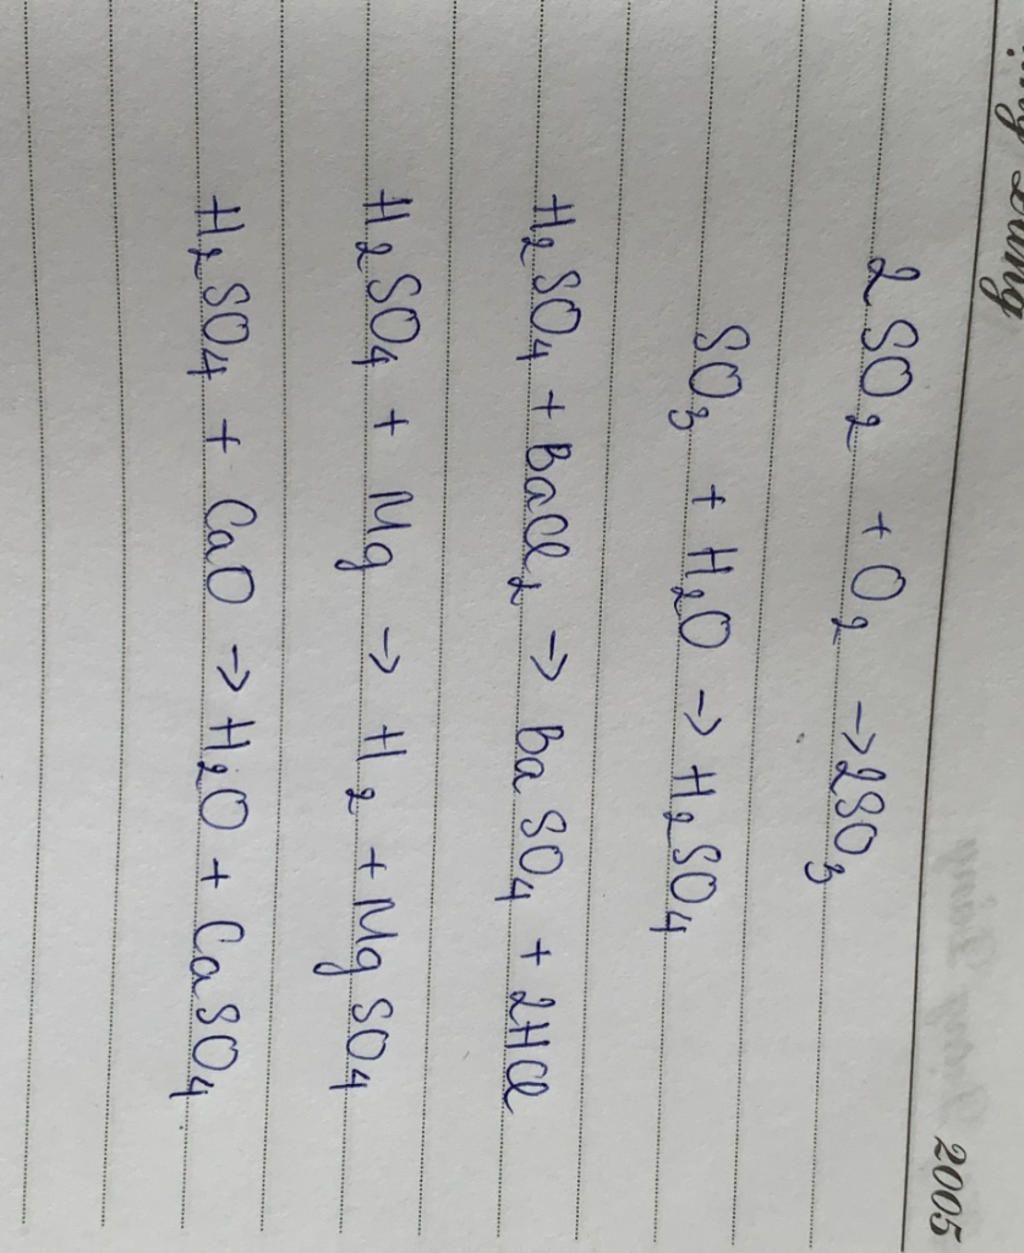 2005
2SO₂ + O₂ → 2SO₃
SO₃ + H₂O → H₂SO₄
H₂SO₄ + BaCl₂ → BaSO₄ + 2HCl
H₂SO₄ + Mg → H₂ + MgSO₄
H₂SO₄ + CaO → H₂O + CaSO₄